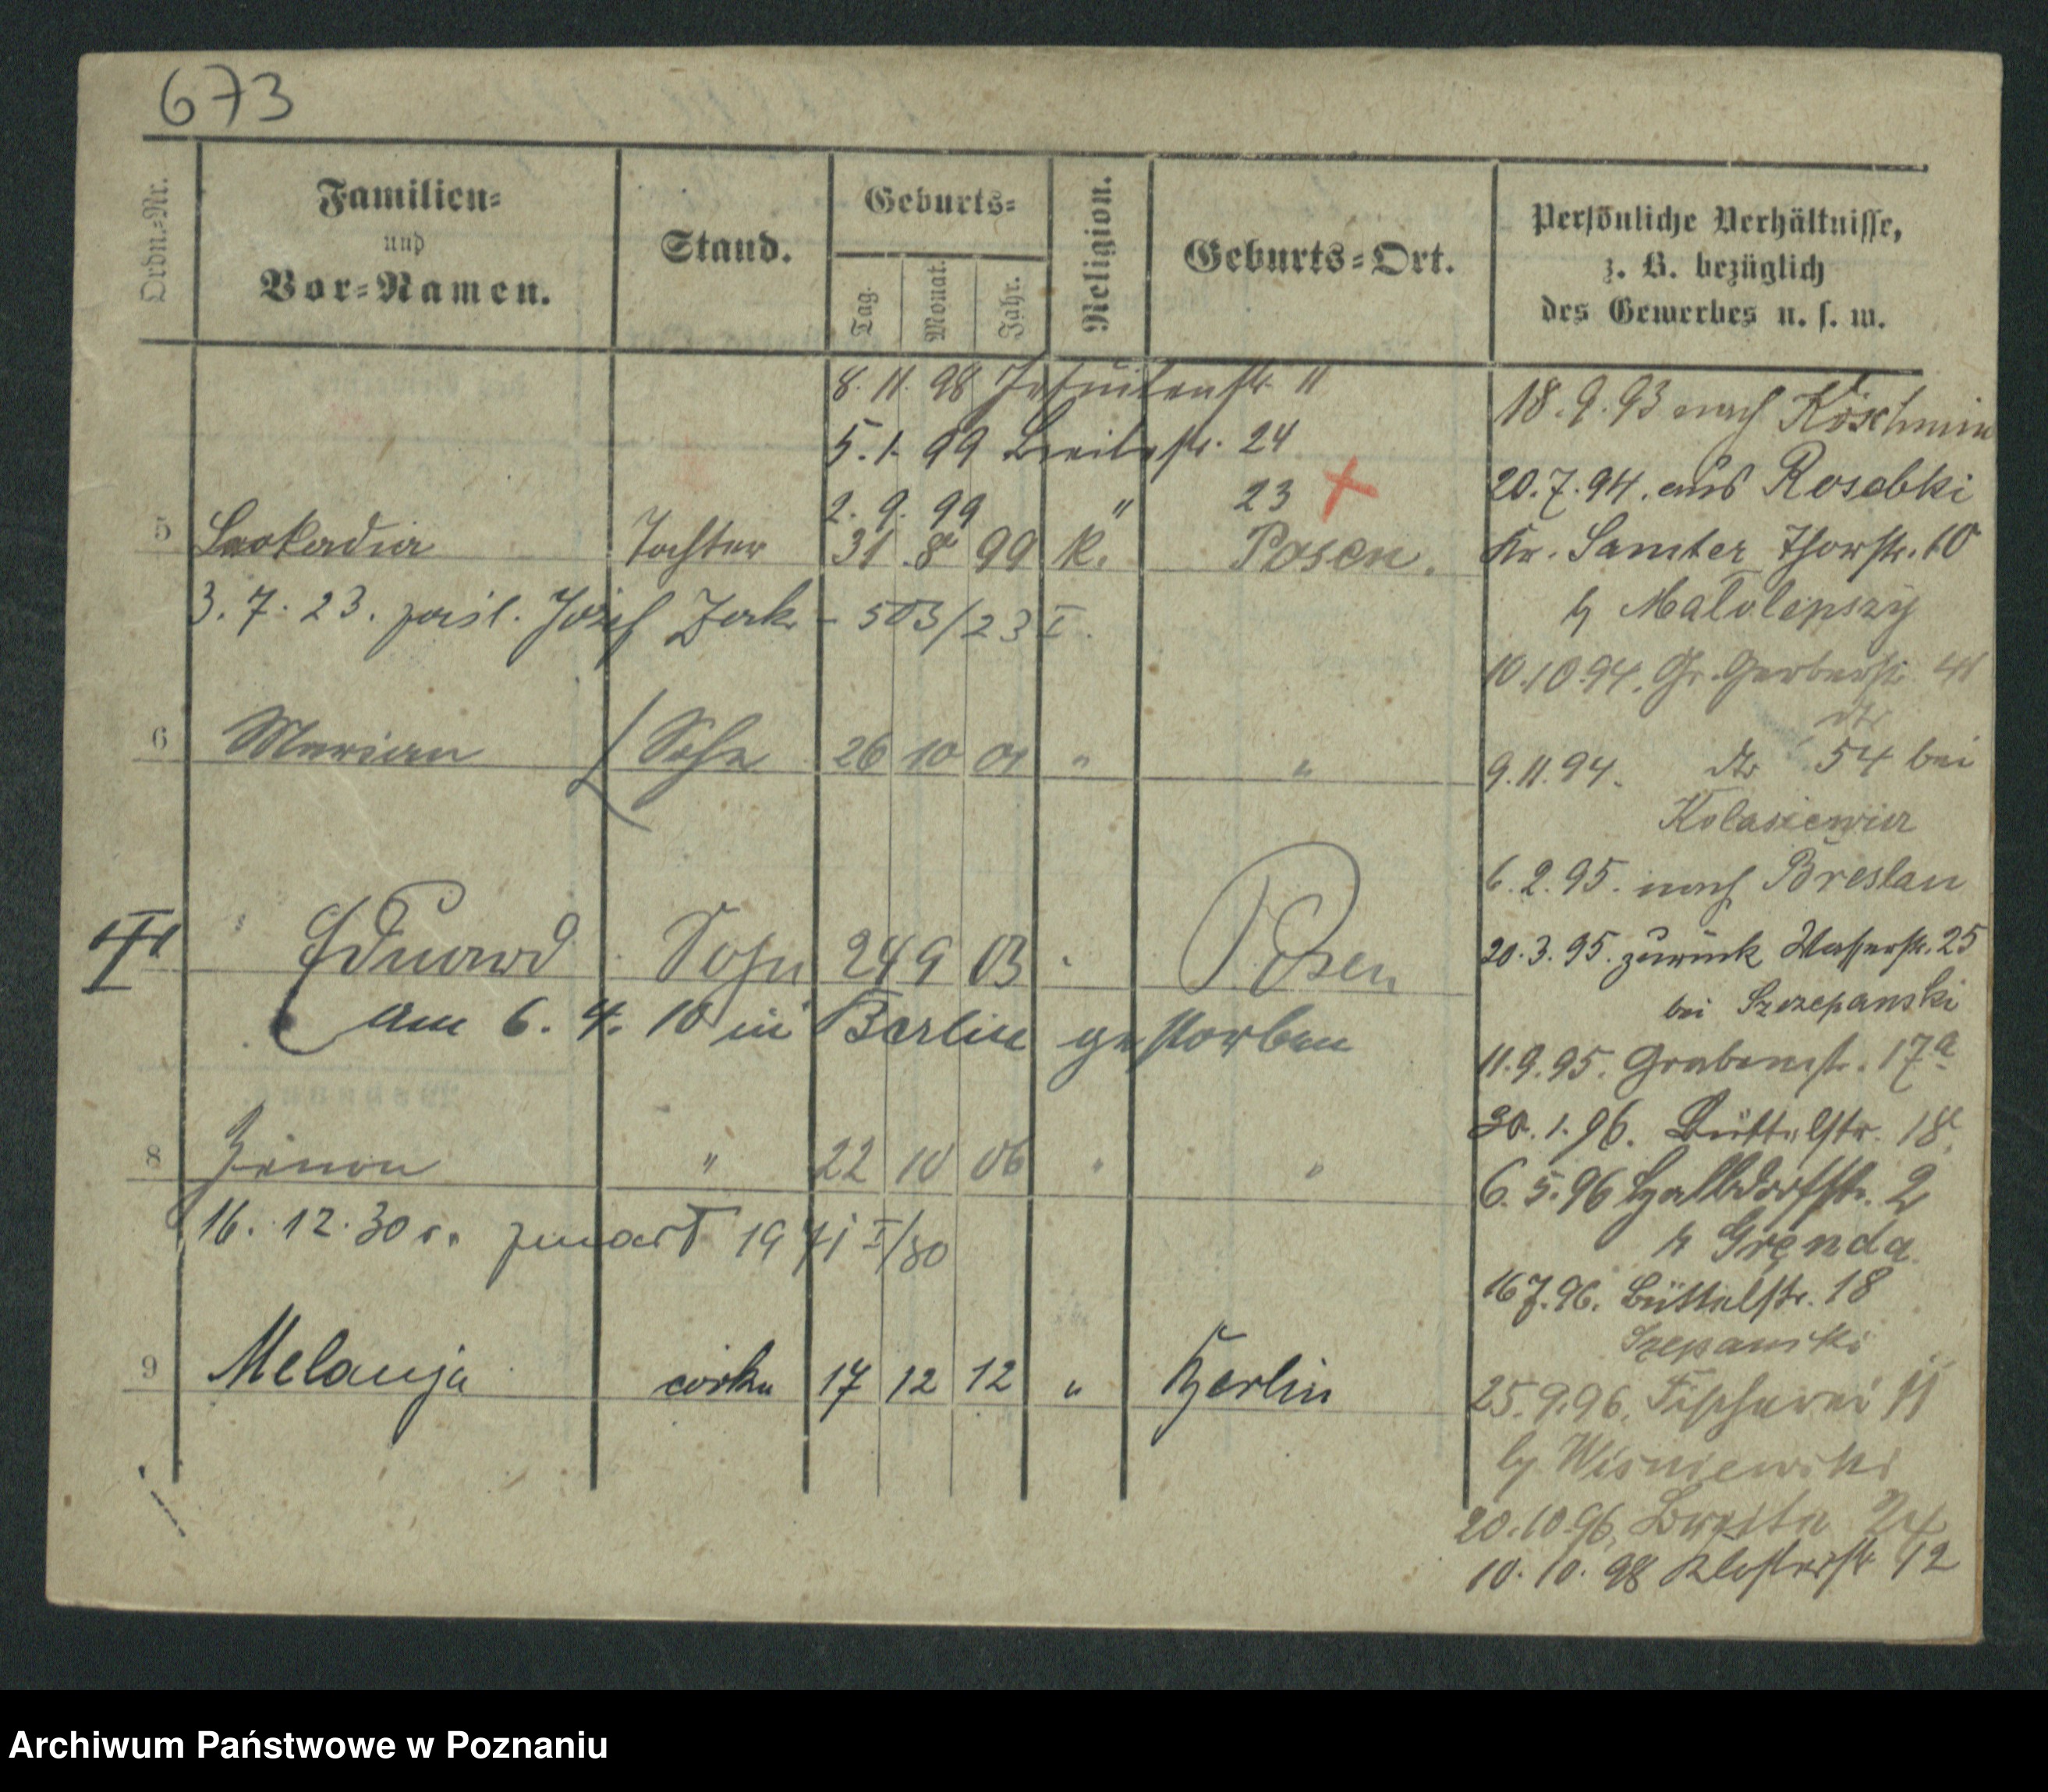 673
Ordn.-Nr.
Familien-
und
Vor-Namen.
Stand.
Geburts-
Tag.
Monat.
Jahr.
Religion.
Geburts-Ort.
Persönliche Verhältnisse,
z. B. bezüglich
des Gewerbes u. s. w.
8. 11. 98 Jesuitenstr. 11
5. 1. 99 Breitestr. 24
2. 9. 99 " 23
5 Leokadia Tochter 31 8 99 K. Posen.
3. 7. 23. zaśl. Józef - 503/23 I.
6 Marian Sohn 26 10 01 " "
Eduard Sohn 24 9 03 " Posen
am 6. 4. 10 in Berlin gestorben
8 Zenon " 22 10 06 " "
16. 12. 30 r. zmarł 1971 I/30
9 Melanja córka 17 12 12 " Berlin
18. 9. 93 nach Koschmin
20. 7. 94. aus Rosebki
Kr. Samter Thorstr. 10
b/ Małolepszy
10.10.94. Gr. Gerberstr. 41
dto
9. 11. 94. dto 54 bei
Kolasiewicz
6. 2. 95. nach Breslau
20. 3. 95. zurück Wasserstr. 25
bei Szczepanski
11. 9. 95. Grabenstr. 17a
30. 1. 96. Büttelstr. 18
6. 5. 96 Halbdorfstr. 2
b/ Gręnda
16 7. 96. Büttelstr. 18
Szepanski
25. 9. 96. Fischerei 11
b/ Wisniewski
20. 10. 96. Breite 24
10. 10. 98 Klosterstr. 12
Archiwum Państwowe w Poznaniu